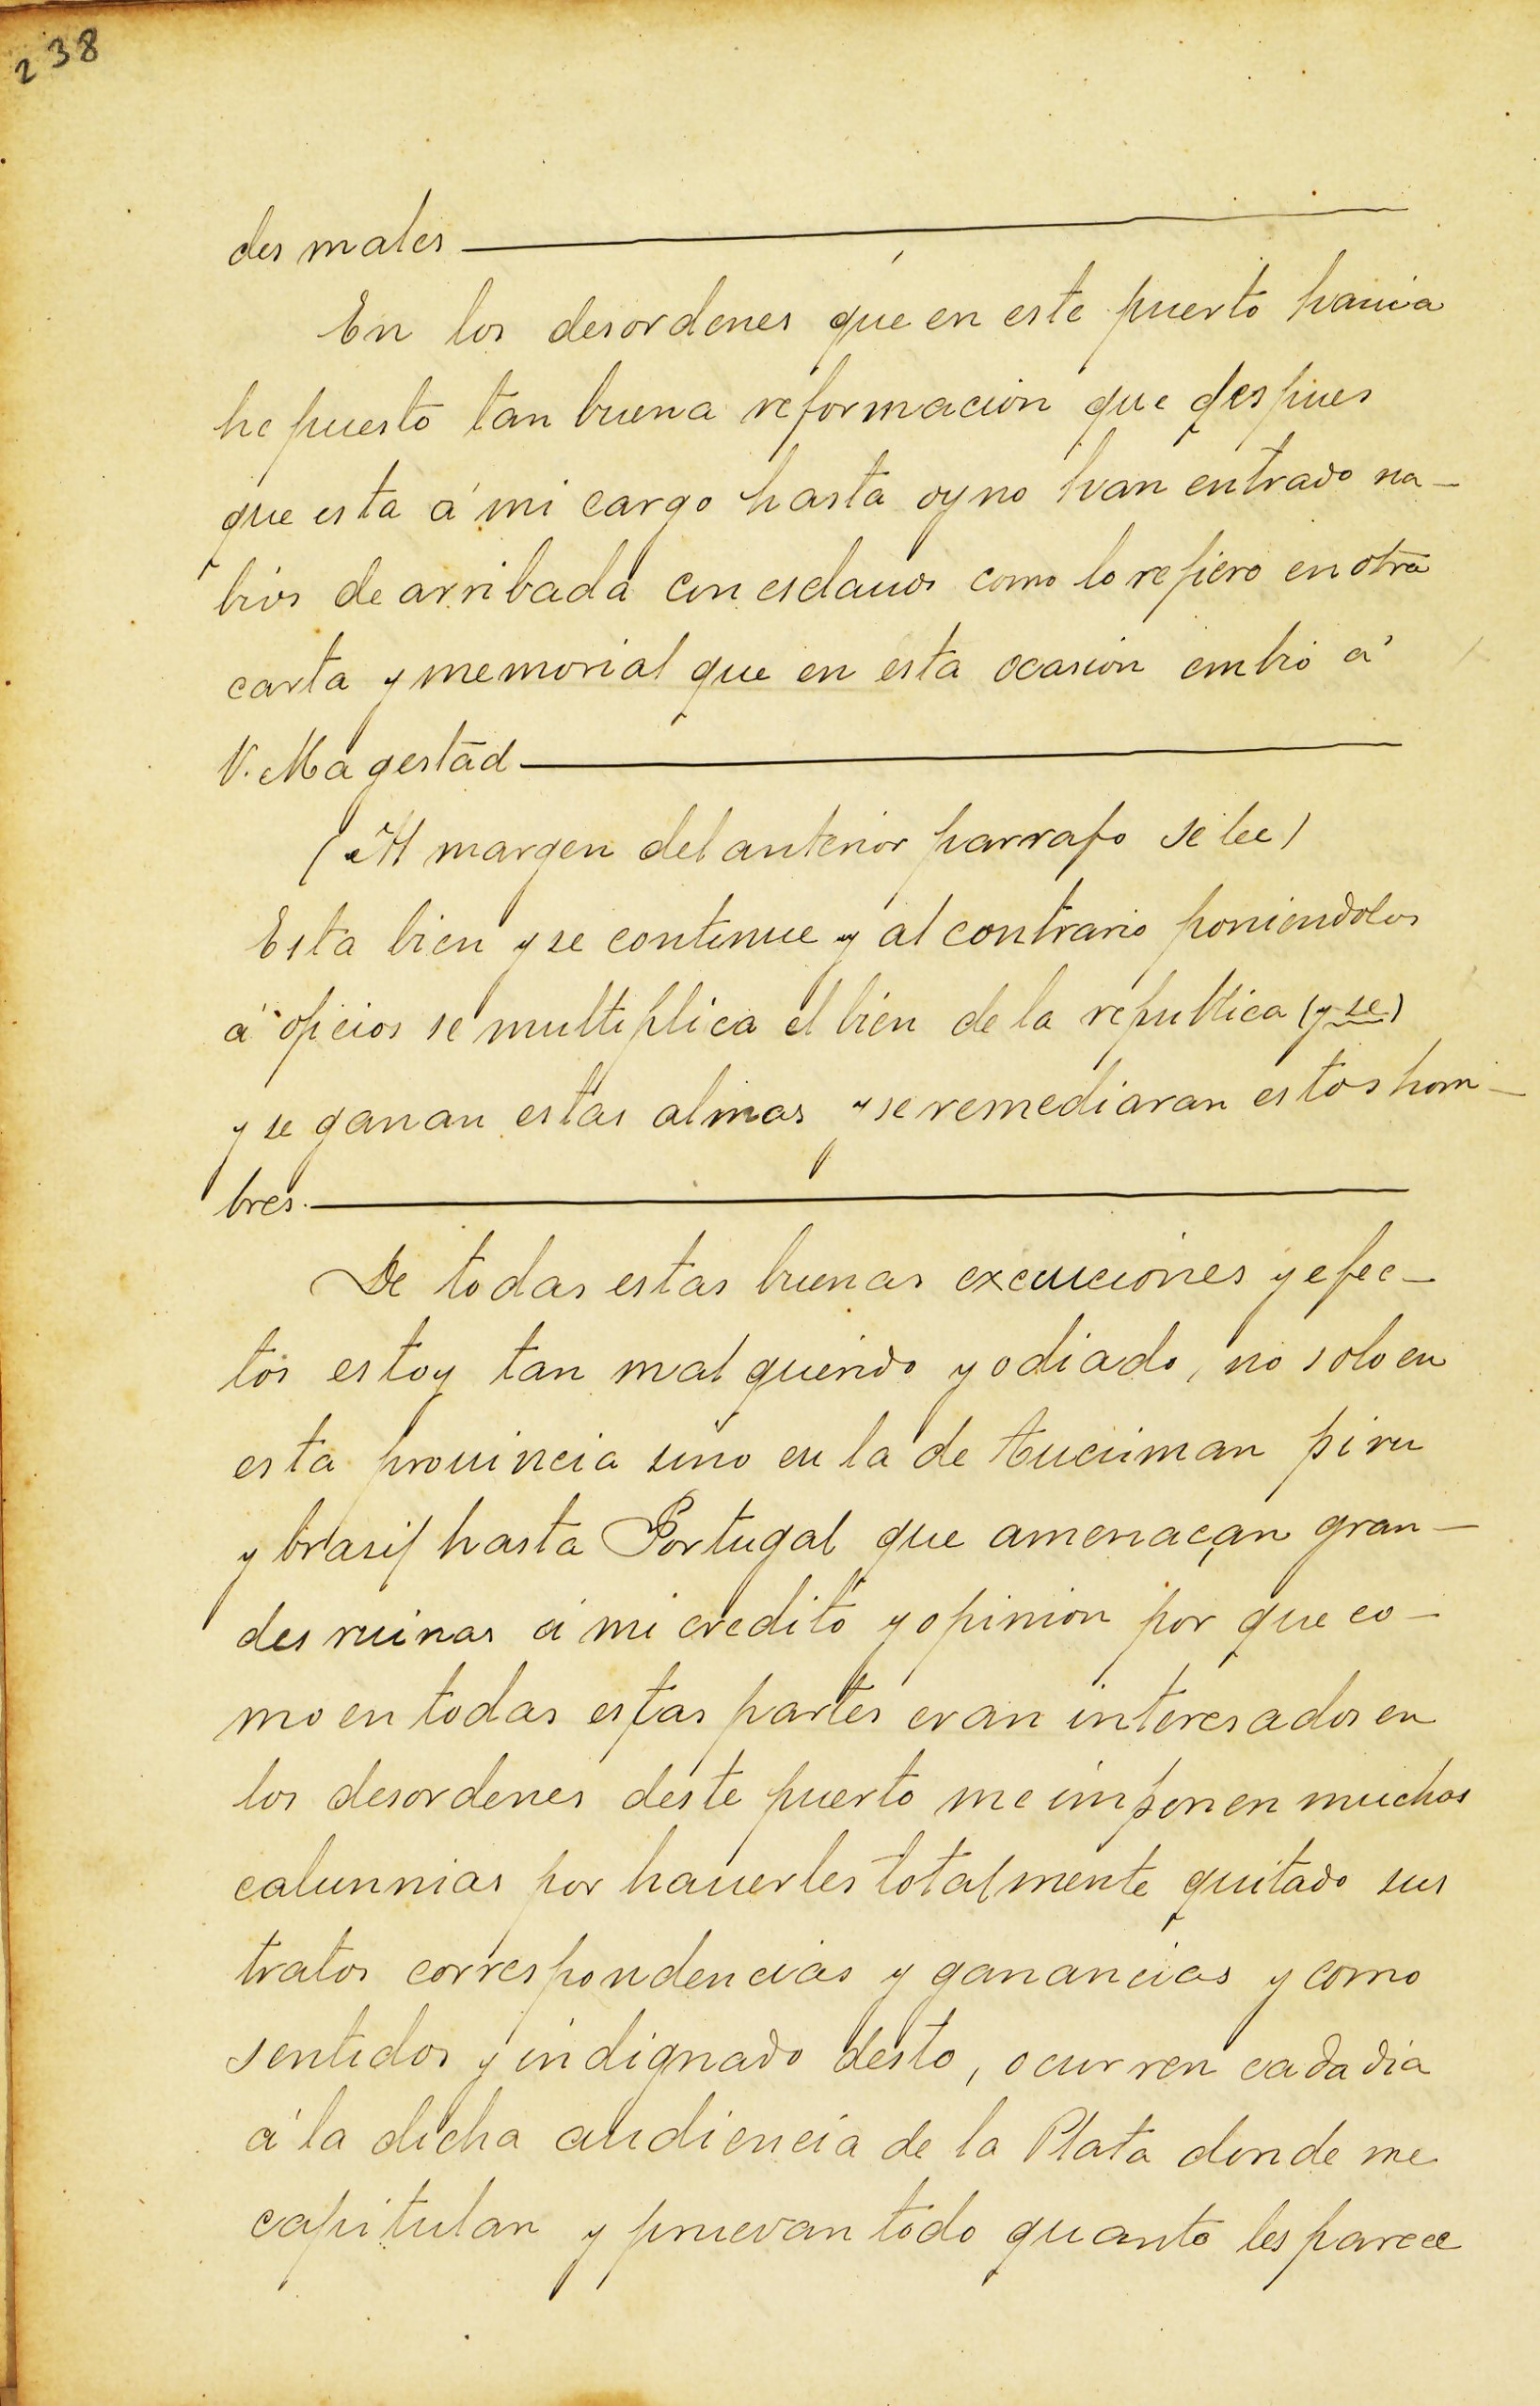 238
des males
En los desordenes que en este puerto hauia
he puesto tan buena reformacion que despues
que esta á mi cargo hasta oy no han entrado na-
bios de arribada con esclauos como lo refiero en otra
carta y memorial que en esta ocasion embio á
V. Magestad
(Al margen del anterior parrafo se lee)
Esta bien y se continue y al contrario poniendolos
á oficios se multiplica el bien de la republica (y se)
y se ganan estas almas y se remediaran estos hom-
bres.
De todas estas buenas excuciones y efec-
tos estoy tan mal querido y odiado, no solo en
esta prouincia sino en la de tucuman piru
y brasil hasta Portugal que amenaçan gran-
des ruinas á mi credito y opinion por que co-
mo en todas estas partes eran interesados en
los desordenes deste puerto me imponen muchas
calunnias por hauerles totalmente quitado sus
tratos correspondencias y ganancias y como
sentidos y indignado desto, ocurren cada dia
á la dicha audiencia de la Plata donde me
capitulan y pruevan todo quanto les parece